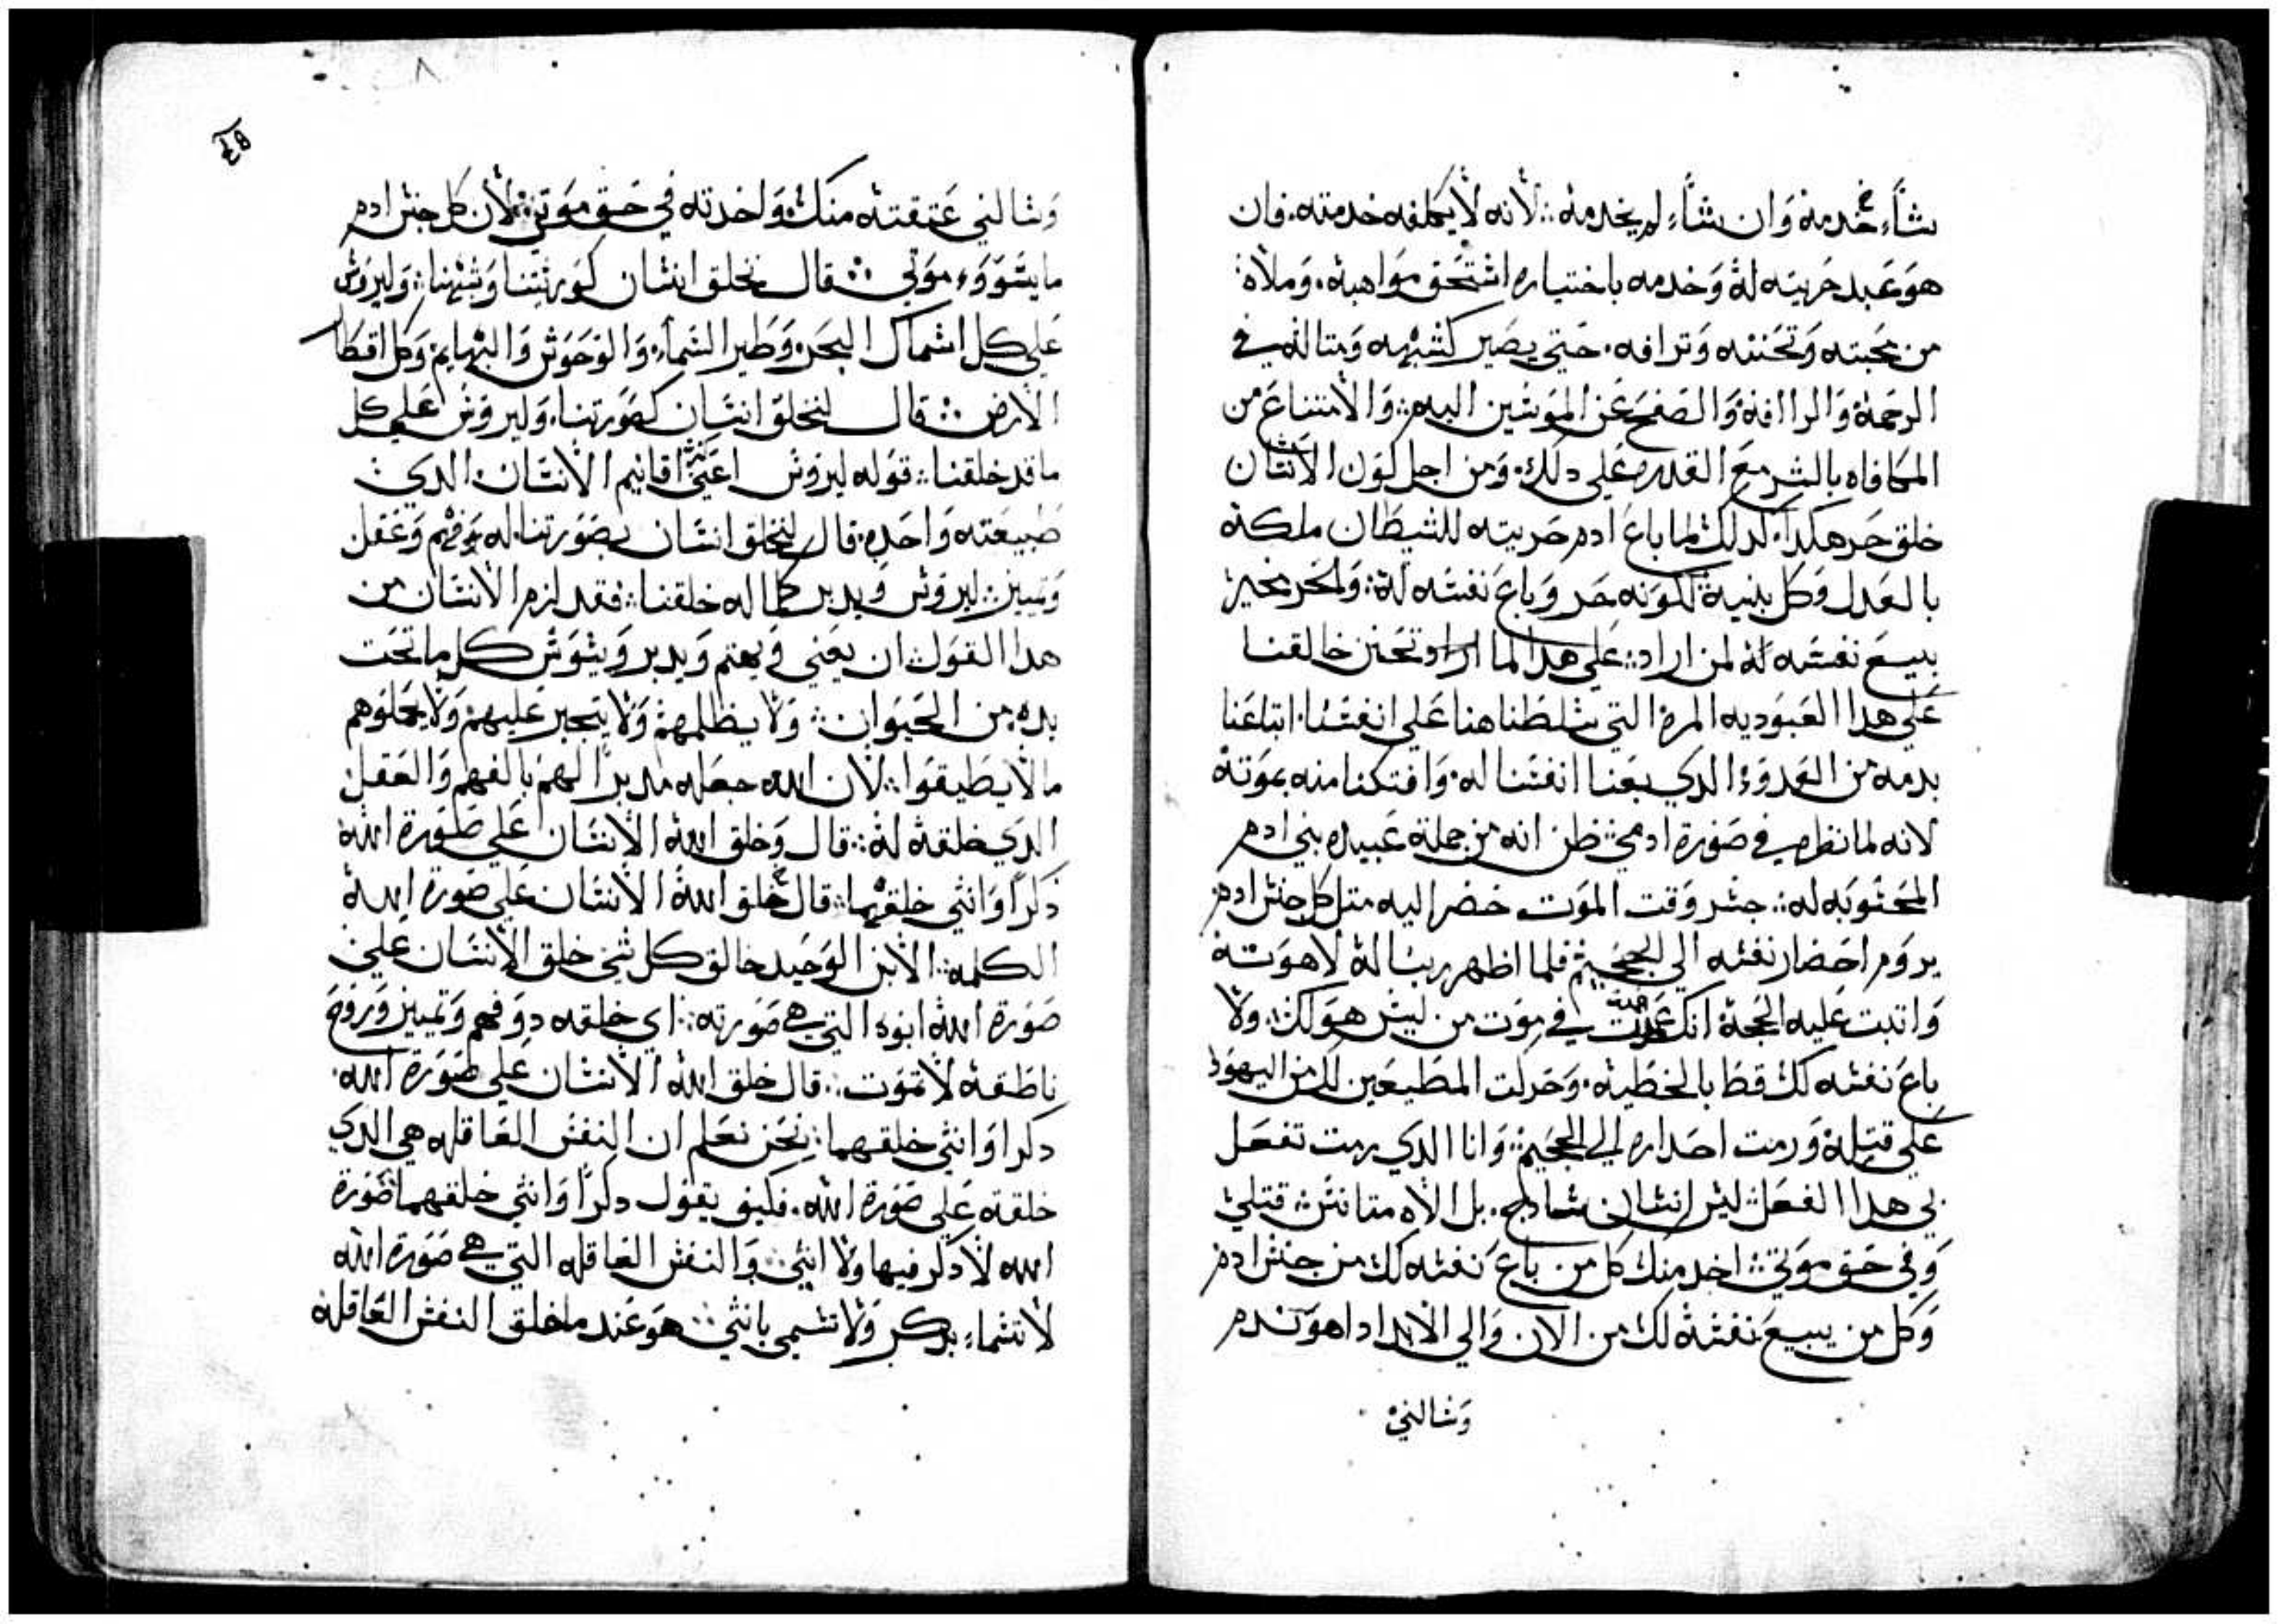 شاء خدمة وان شاء لم يخدمه لانه لا يكلفه خدمته فان
هو عبد حريته له وخدمه باختياره استحق مواهبه وملاه
من محبته وتحننه وترافه حتي يصير كشبهه ومتاله في
الرحمة والراافة والصفح عن المويسين اليه والامتناع من
المكافاه بالشر مع القدره علي دلك ومن اجل كون الانسان
خلق حر هكدا كدلك لما باع ادم حريته للشيطان ملكه
بالعدل وكل بنيه لكونه حر وباع نفسه له والحر مخير
ببيع نفسه له لمن اراد علي هدا لما اراد تحنن خالقنا
علي هدا العبوديه المره التي سلطناها علي انفسنا ابتاعنا
بدمه من العدو الدي بعنا انفسنا له وافتكنا منه بموته
لانه لما نظره في صورة ادمي ظن انه من جملة عبيده بني ادم
المحسوبه له جسر وقت الموت حضر اليه متل كل جنس ادم
يروم احضار نفسه الي الجحيم فلما اظهر له لاهوته
واتبت عليه الحجة انك في موت من ليس هو لك ولا
باع نفسه لك قط بالخطيه وحركت المطيعين لك من اليهود
علي قتله ورمت احداره الي الجحيم وانا الدي رمت تفعل
بي هدا الفعل ليس انسان سادج بل الاه متانس قتلي
وفي حق موتي اخد منك كل من باع نفسه لك من جنس ادم
وكل من يبيع نفسه لك من الان والي الابد ادا هو ندم
وسالني
وسالني عتقته منك واخدته في حق موتي لان كل جنس ادم
ما يسووء موتي قال نخلق انسان كورتنا وشبهنا وليروس
علي كل اسماك البحر وطير السماء والوحوش والبهايم وكل اقطار
الارض قال لنخلق انسان كصورتنا وليروس علي كل
ما قد خلقنا قوله ليروس اعني اقانيم الانسان الدي
طبيعته واحده قال لنخلق انسان بصورتنا له فهم وعقل
وتمييز ليروس ويدبر كما له خلقنا فقد لزم الانسان من
هدا القول ان يعني ويهتم ويدبر ويسوس كل ما تحت
يده من الحيوان ولا يظلمهم ولا يتجبر عليهم ولا يحملوهم
ما لا يطيقوا لان الله جعله مدبرا لهم بالفهم والعقل
الدي خلقه له قال وخلق الله الانسان علي صورة الله
دكرا وانثي خلقهما قال خلق الله الانسان علي صورة الله
الكلمه الابن الوحيد خالق كل شي خلق الانسان علي
صورة الله ابوه التي هي صورته اي خلقه دو فهم وتمييز وروح
ناطقه لا تموت قال خلق الله الانسان علي صورة الله
دكرا وانثي خلقهما نحن نعلم ان النفس العاقله هي الدي
خلقة علي صورة الله فكيف يقول دكرا وانثي خلقهما صورة
الله لا دكر فيها ولا انثي والنفس العاقله التي هي صورة الله
لا تسماء بدكر ولا تسمي بانثي هو عند ما خلق النفس العاقله